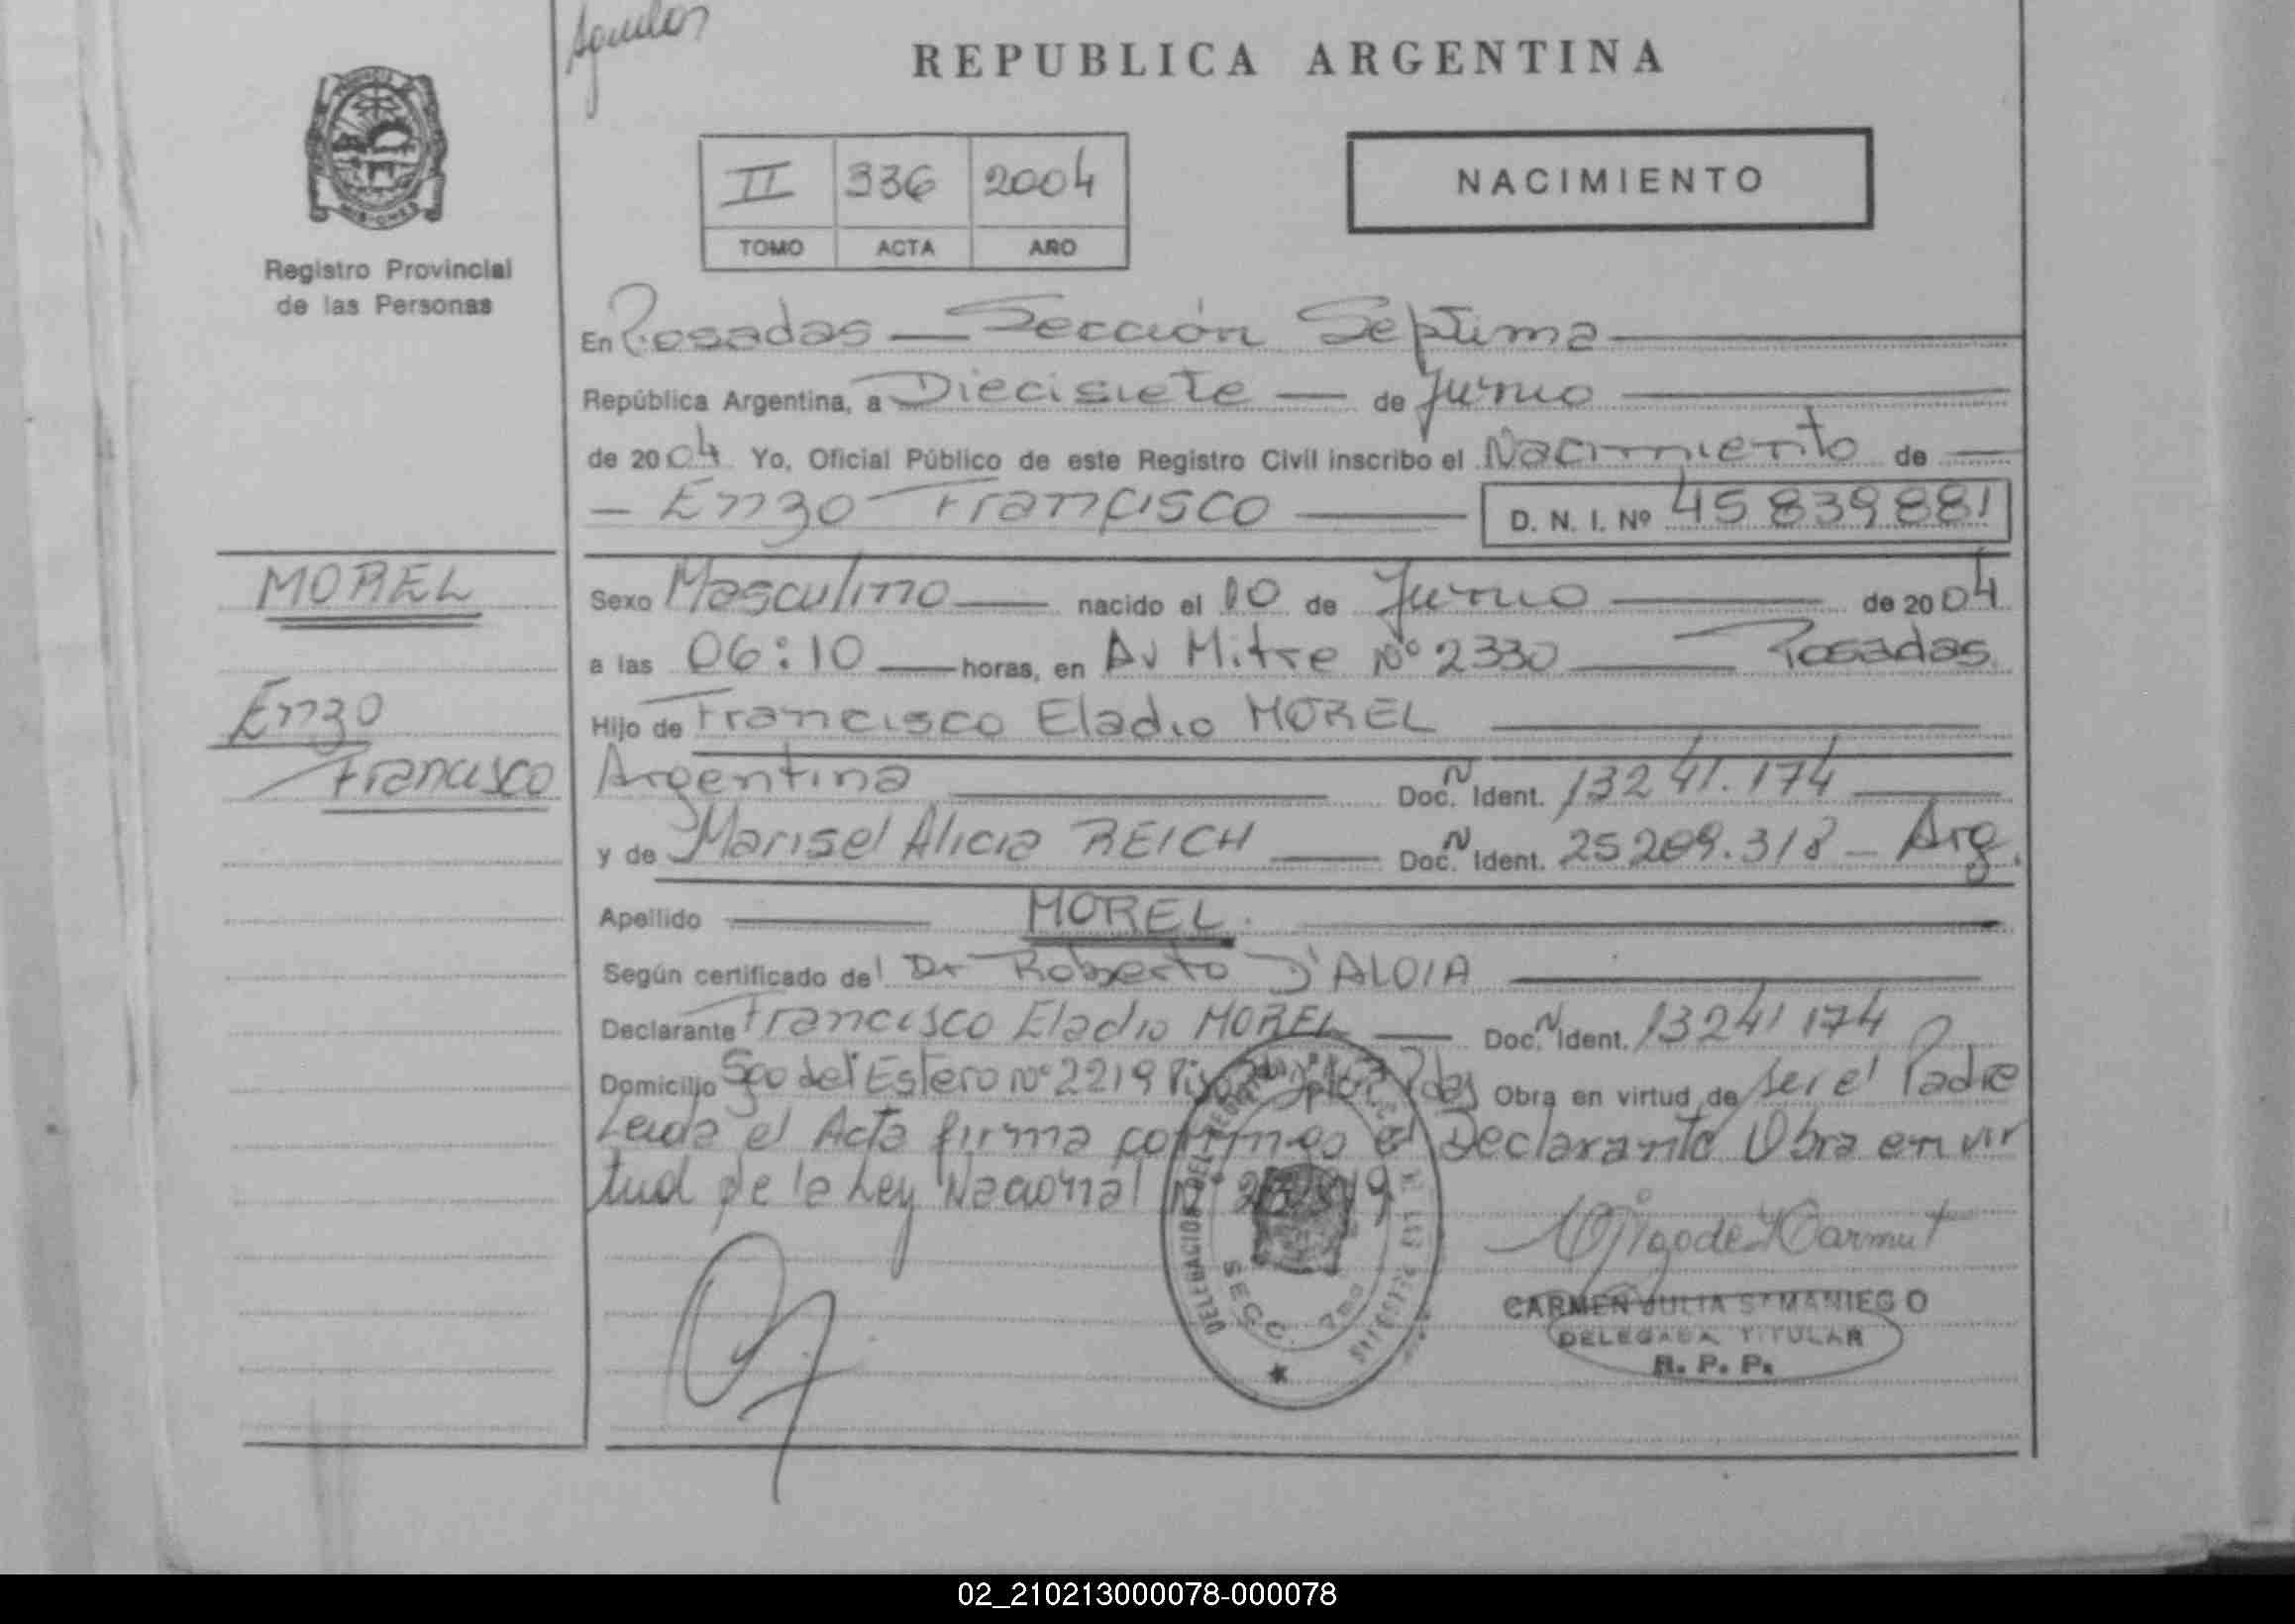 REPUBLICA ARGENTINA
NACIMIENTO
II 336 2004
TOMO ACTA AÑO
MISIONES
Registro Provincial
de las Personas
En Posadas — Sección Septima
República Argentina, a Diecisiete — de Junio
de 2004 Yo, Oficial Público de este Registro Civil inscribo el Nacimiento de —
— Enzo Francisco — D. N. I. Nº 45 839 881
MOREL
Enzo
Francisco
Sexo Masculino — nacido el 10 de Junio — de 2004
a las 06:10 — horas, en Av Mitre Nº 2330 — Posadas
Hijo de Francisco Eladio MOREL
Argentina — Doc. N Ident. 13241.174
y de Marisel Alicia REICH — Doc. N Ident. 25209.318 — Arg.
Apellido — MOREL.
Según certificado del Dr Roberto D'ALOIA
Declarante Francisco Eladio MOREL — Doc. N Ident. 13241174
Domicilio Sgo del Estero Nº 2219 Pdas Obra en virtud de ser el Padre
Leida el Acta firma conmigo el Declarante Obra en vir
tud de la Ley Nacional Nº
DELEGACION DEL
SECC. 7ma
CARMEN JULIA SAMANIEGO
DELEGADA TITULAR
R. P. P.
02_210213000078-000078